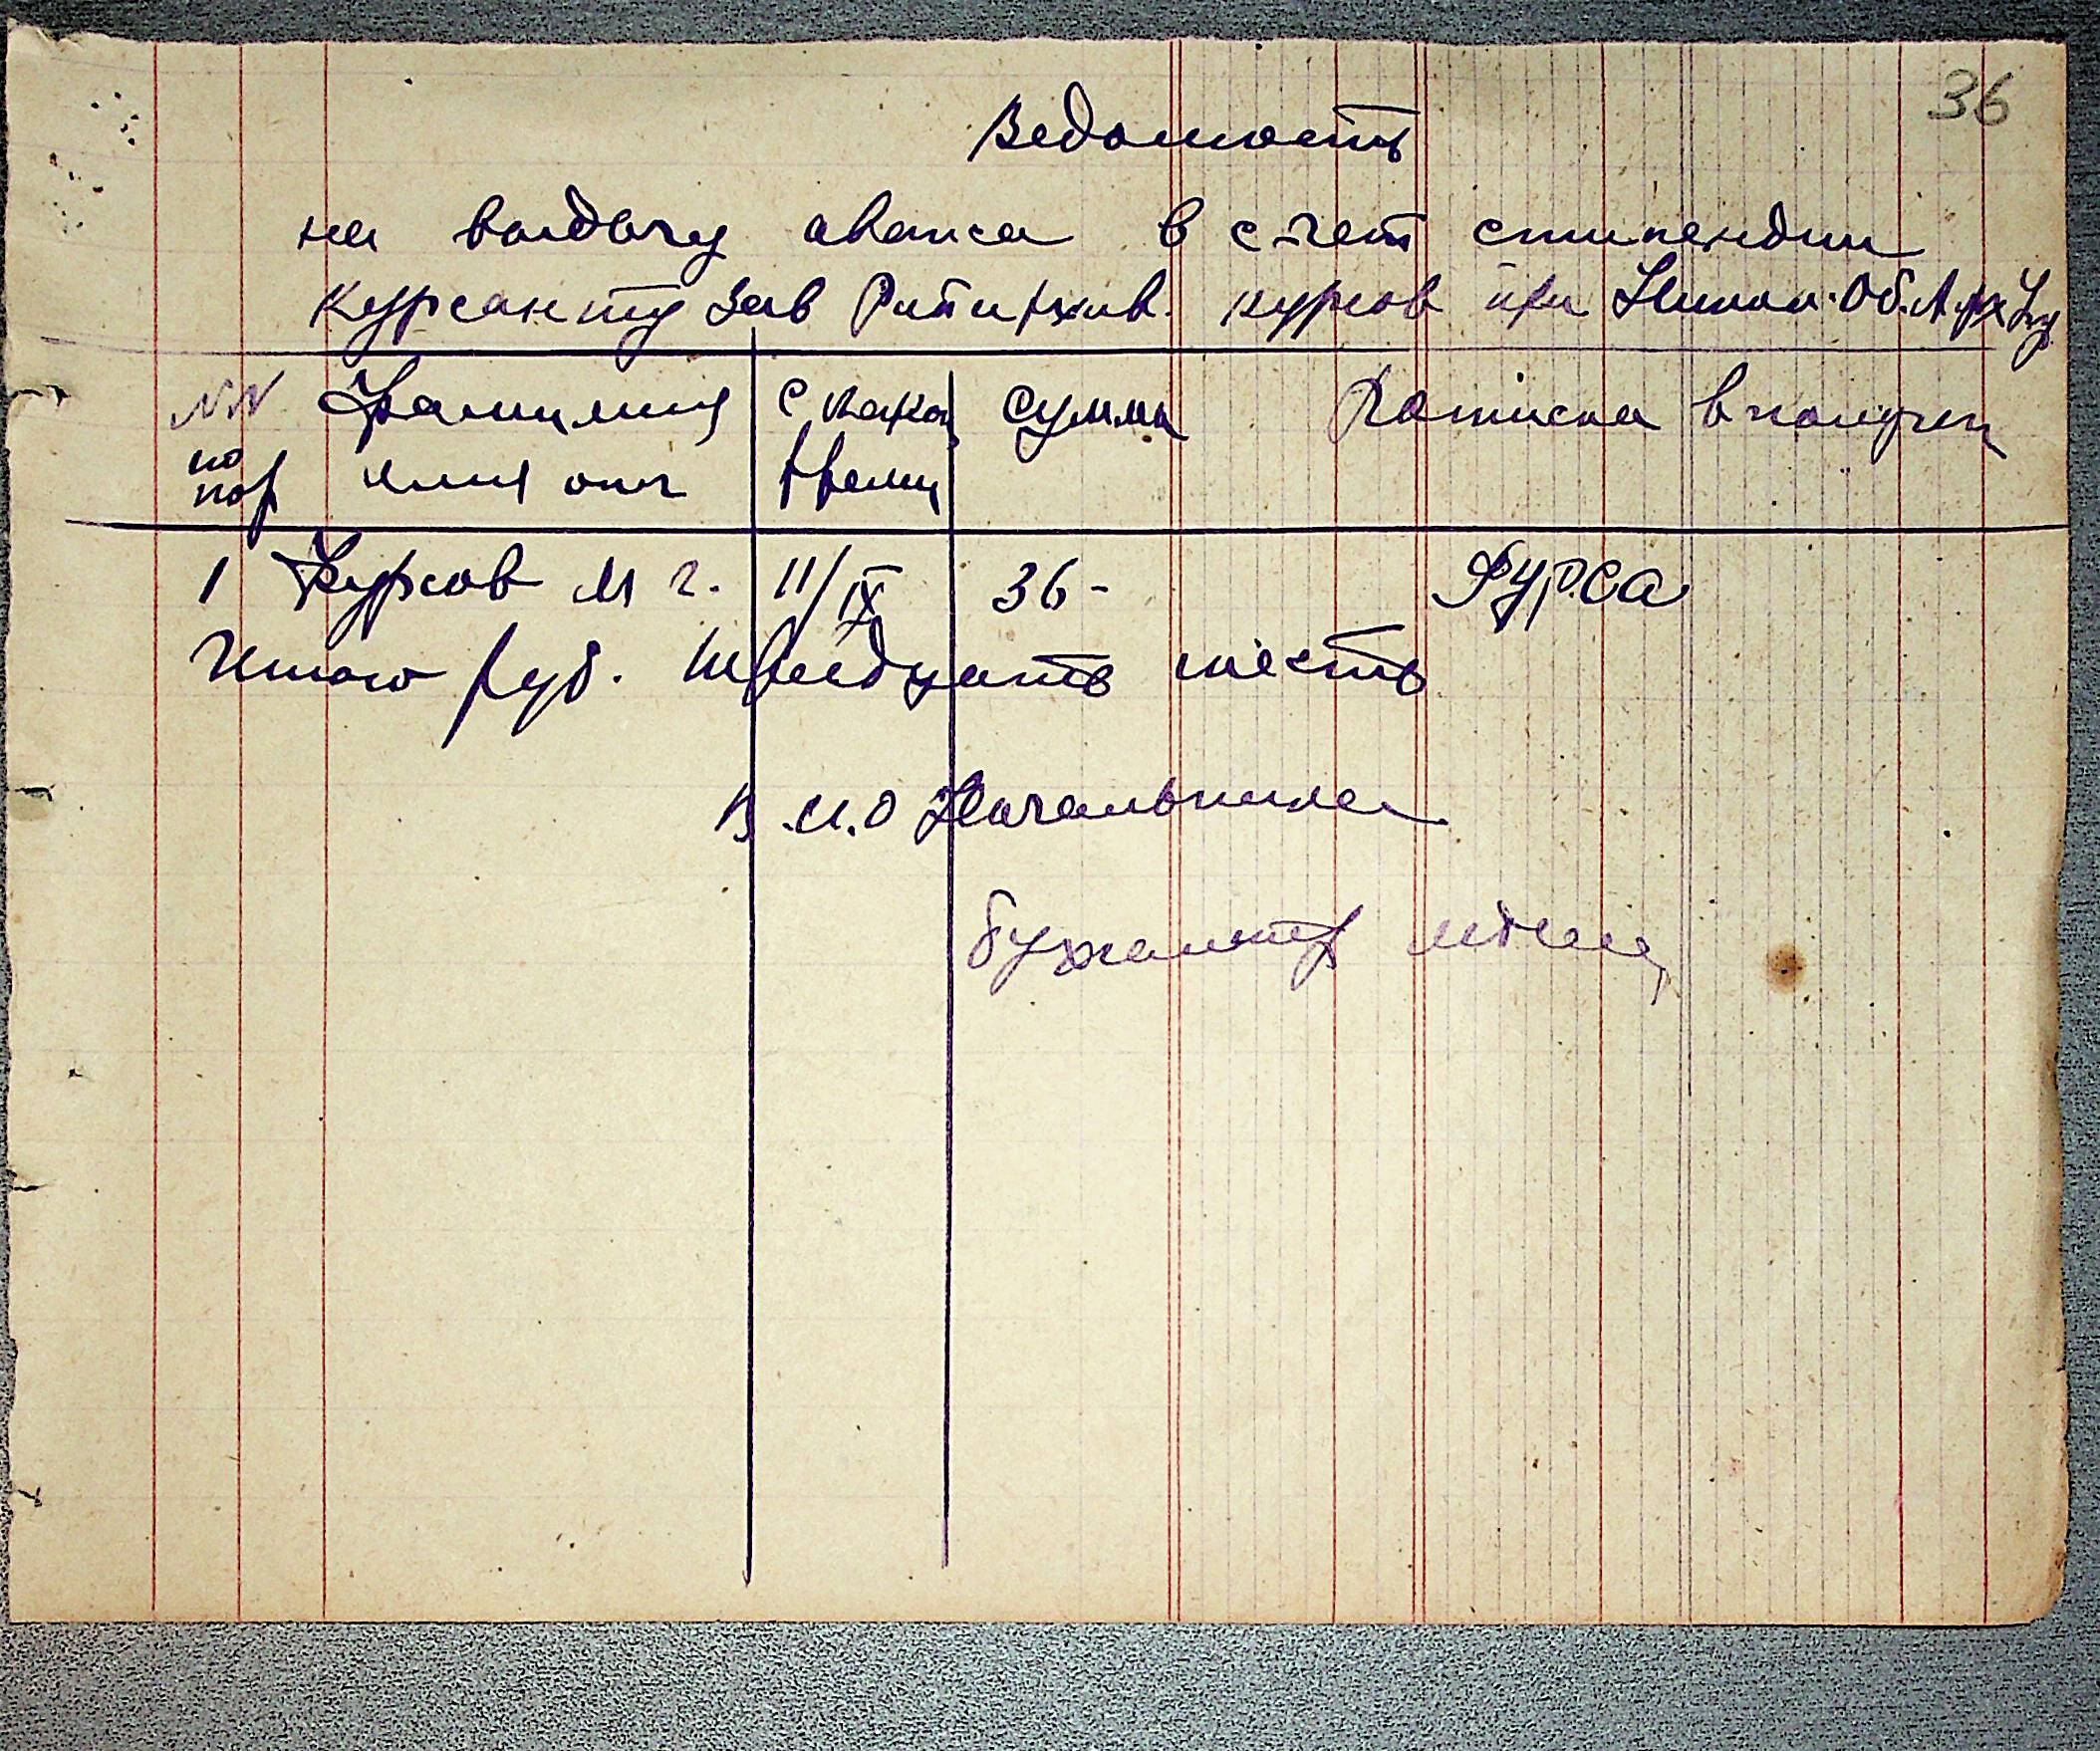 36
Ведомость
на выдачу аванса в счет стипендии
курсанту Зав Рай Архив. курсов при Никол. Об. Арх Упр
NN по пор Фамилия имя отч С какого времени Сумма Расписка в получен
1 Фурсов М Г. 11/IX 36- Фурса
Итого руб. тридцать шесть
В.И.О Начальника
бухгалтер